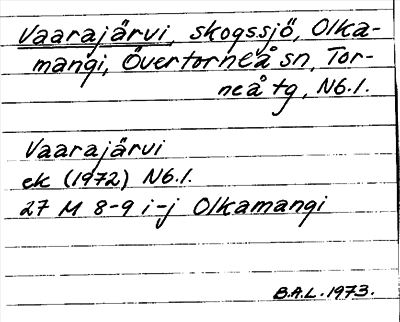 Vaarajärvi, skogssjö, Olka-
mangi, Övertorneå sn, Tor-
neå tg, Nb.l.
Vaarajärvi
ek (1972) Nb.l.
27 M 8-9 i-j Olkamangi
B.A.L. 1973.